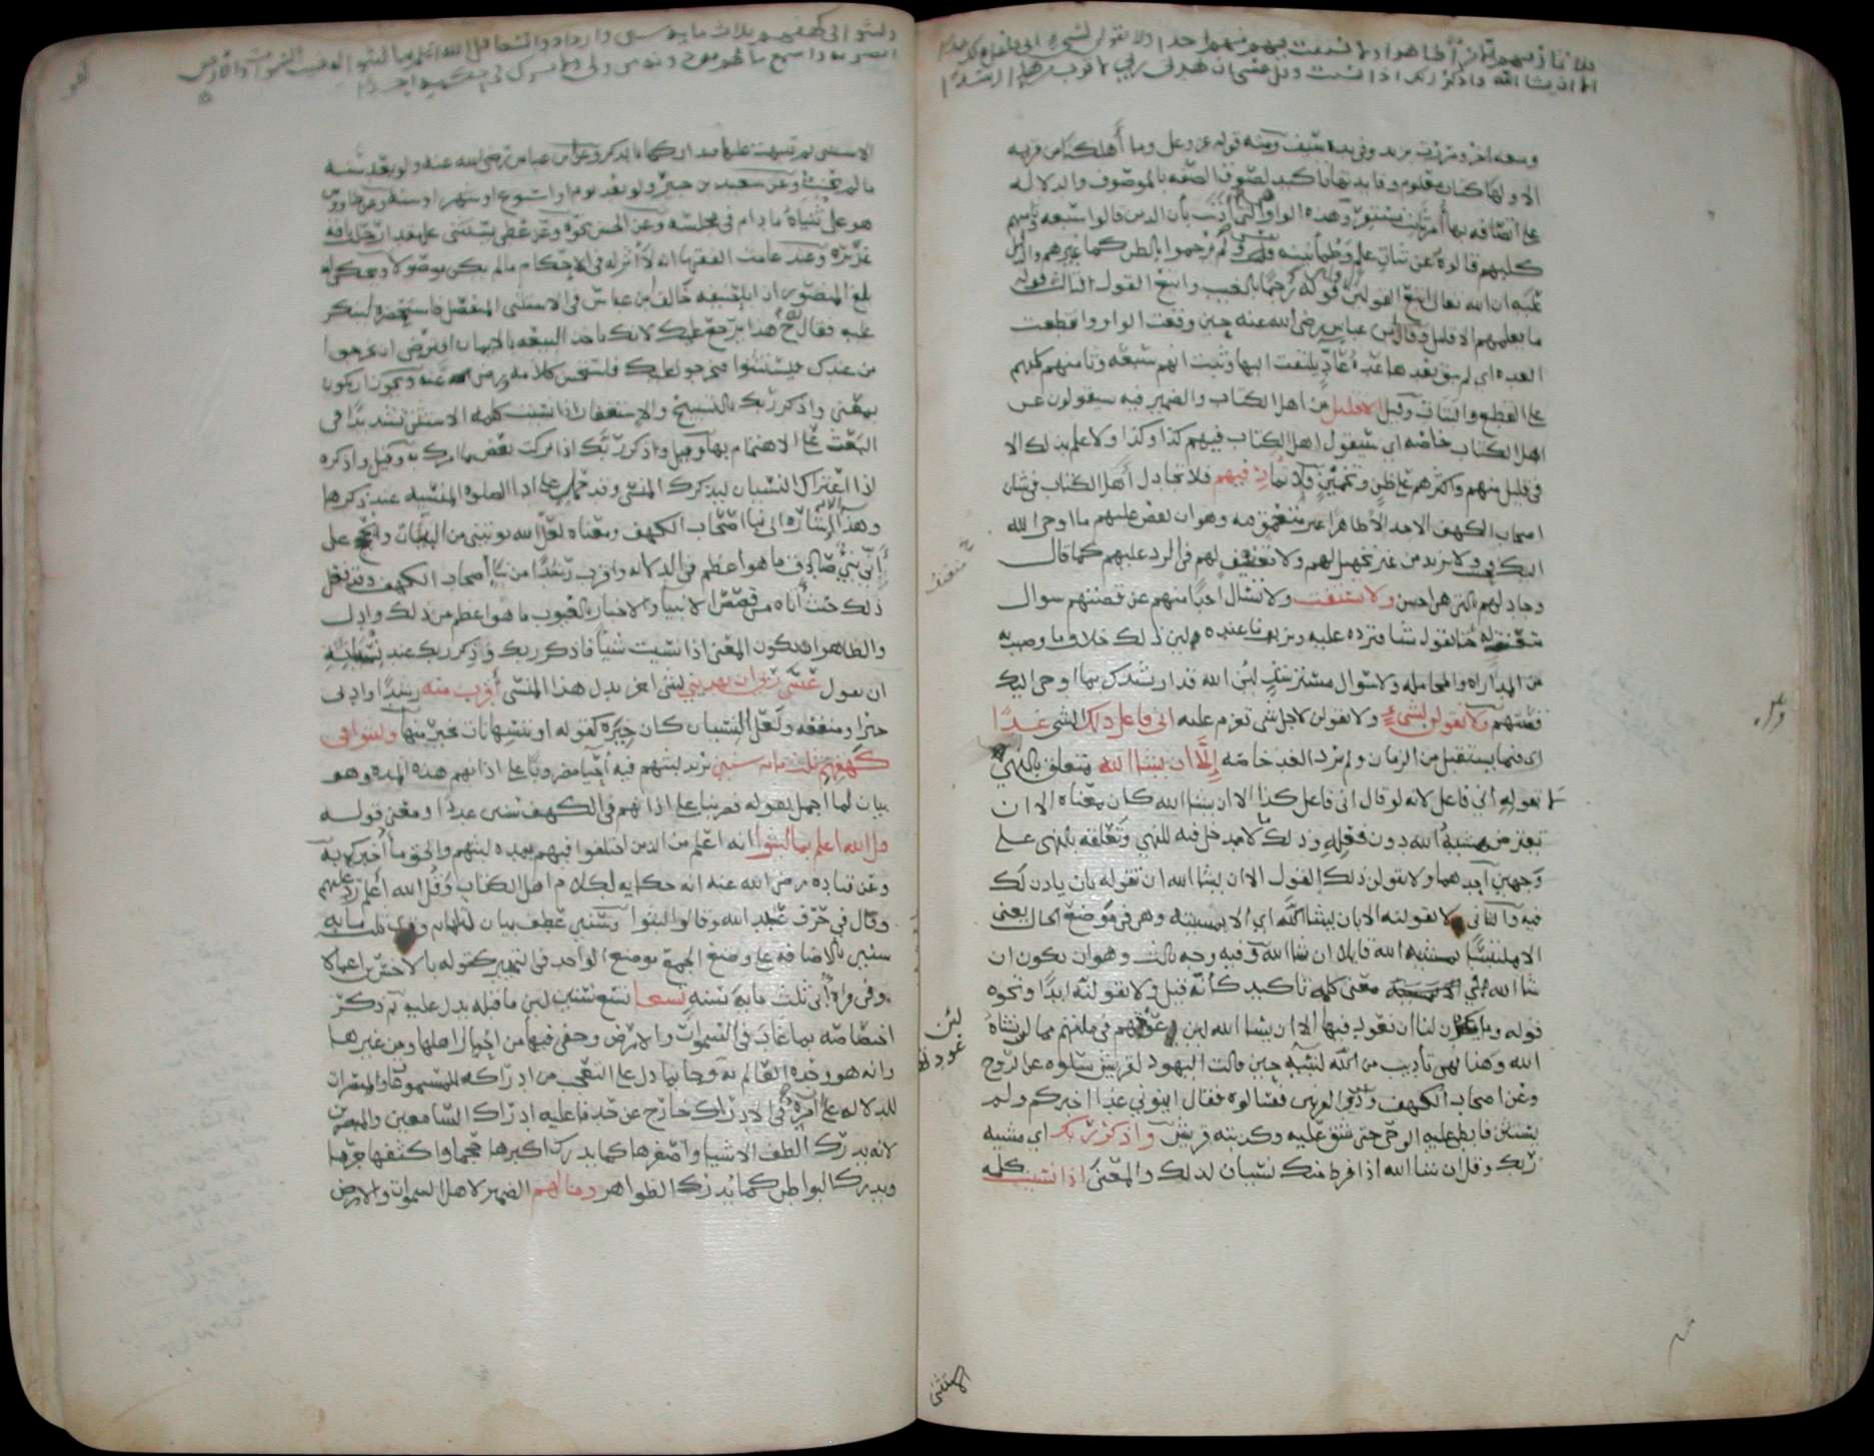 فلا تمار فيهم الا مرآ ظاهرا ولا تستفت فيهم منهم احدا ولا تقولن لشيء اني فاعل ذلك غدا
الا ان يشا الله واذكر ربك اذا نسيت وقل عسى ان يهدين ربي لاقرب من هذا رشدا
ومعه اخر ومررت بزيد وفي يده سيف ومنه قوله عز وعل وما أهلكنا من قرية
الا ولها كتاب معلوم وفايدتها تاكيد لصوق الصفه بالموصوف والدلاله
على اتصافه بها أمر ثابت مستقر وهذه الواو هي التي آذنت بأن الذين قالوا سبعه وثامنهم
كلبهم قالوه عن ثبات علم وطمأنينه نفس ولم يرجموا بالظن كما غيرهم والدليل
عليه ان الله تعالى اتبع القولين الاولين قوله رجما بالغيب واتبع القول الثالث قوله
ما يعلمهم الا قليل وقال ابن عباس رضي الله عنه حين وقعت الواو انقطعت
العده اي لم يبق بعدها عده عاد يلتفت اليها وثبت انهم سبعه وثامنهم كلبهم
على القطع والثبات وقيل الا قليل من اهل الكتاب والضمير فيه سيقولون عن
اهل الكتاب خاصه اي سيقول اهل الكتاب فيهم كذا وكذا ولا علم بذلك الا
في قليل منهم واكثرهم على ظن وتخمين فلا تمار فيهم فلا تجادل أهل الكتاب في شان
اصحاب الكهف الا جدالا ظاهرا غير متعمق فيه وهو ان تقص عليهم ما اوحى الله
اليك ولا تزيد من غير تجهيل لهم ولا تعنيف لهم في الرد عليهم كما قال
وجادلهم بالتي هي احسن ولا تستفت ولا تسال احدا منهم عن قصتهم سوال
متعنت له حتى يقول شيا فترده عليه وتزيف ما عنده لان ذلك خلاف ما وصيت به
من المداراه والمجامله ولا سوال مسترشد لان الله قد ارشدك بما اوحى اليك
قصتهم ولا تقولن لشيء ولا تقولن لاجل شي تعزم عليه اني فاعل ذلك الشي غدا
اي فيما يستقبل من الزمان ولم يرد الغد خاصه إلا ان يشا الله متعلق بالنهي
لا بقوله اني فاعل لانه لو قال اني فاعل كذا الا ان يشا الله كان معناه الا ان
تعترض مشية الله دون فعله وذلك ما لا مدخل فيه للنهي وتعلقه بالنهي على
وجهين احدهما ولا تقولن ذلك القول الا ان يشا الله ان تقوله بان ياذن لك
فيه والثاني ولا تقولنه الا بان يشا الله اي الا بمشيته وهو في موضع الحال يعني
الا ملتبسا بمشية الله قايلا ان شا الله وفيه وجه ثالث وهو ان يكون ان
شا الله في معنى كلمه تاكيد كأنه قيل ولا تقولنه ابدا ونحوه
قوله وما يكون لنا ان نعود فيها الا ان يشا الله لان عودهم في ملتهم مما لن يشاه
الله وهذا نهي تأديب من الله لنبيه حين قالت اليهود لقريش سلوه عن الروح
وعن اصحاب الكهف وذي القرنين فسالوه فقال ايتوني غدا اخبركم ولم
يستثن فابطا عليه الوحي حتى شق عليه وكذبته قريش واذكر ربك اي مشيه
ربك وقل ان شا الله اذا فرط منك نسيان لذلك والمعنى اذا نسيت كلمه
لئن
عودهم
الاستثنى
ولبثوا في كهفهم ثلاث مايه سنين وازدادوا تسعا قل الله اعلم بما لبثوا له غيب السموات والارض
ابصر به واسمع ما لهم من دونه من ولي ولا يشرك في حكمه احدا
الاستثنى ثم تنبهت عليها فتداركها بالذكر وعن ابن عباس رضي الله عنه ولو بعد سنه
ما لم تحنث وعن سعيد بن جبير ولو بعد يوم او اسبوع او شهر او سنه وعن طاووس
هو على ثنياه ما دام في مجلسه وعن الحسن نحوه وعن عطا يستثنى على مقدار حلب ناقه
غزيره وعند عامت الفقها انه لا أثر له في الاحكام ما لم يكن موصولا ويحكى انه
بلغ المنصور ان ابا حنيفه خالف ابن عباس في الاستثنى المنفصل فاستحضره لينكر
عليه فقال ح هذا يرجع عليك لانك تاخذ البيعه بالايمان افترضى ان يخرجوا
من عندك فيستثنوا فيخرجوا عليك فاستحسن كلامه ورضي عنه ويجوز ان يكون
بمعنى واذكر ربك بالتسبيح والاستغفار اذا نسيت كلمه الاستثنى تشديدا في
البعث على الاهتمام بها وقيل واذكر ربك اذا تركت بعض ما امرك به وقيل واذكره
اذا اعتراك النسيان ليذكرك المنسي وقد حمل على ادا الصلوه المنسيه عند ذكرها
وهذا إشاره الى نبا اصحاب الكهف ومعناه لعل الله يوتيني من البينات والحجج على
أني نبي صادق ما هو اعظم في الدلاله واقرب رشدا من نبا أصحاب الكهف وقد فعل
ذلك حيث أتاه من قصص الانبيا والاخبار بالغيوب ما هو اعظم من ذلك وادل
والظاهر ان يكون المعنى اذا نسيت شيا فاذكر ربك وذكر ربك عند نسيانه
ان تقول عسى ربي ان يهديني لشي اخر بدل هذا المنسي أقرب منه رشدا وادنى
خيرا ومنفعه ولعل النسيان كان خيره كقوله او ننسها نات بخير منها ولبثوا في
كهفهم ثلث مايه سنين يريد لبثهم فيه أحيا مضروبا على اذانهم هذه المده وهو
بيان لما اجمل بقوله فضربنا على اذانهم في الكهف سنين عددا ومعنى قوله
قل الله اعلم بما لبثوا انه اعلم من الذين اختلفوا فيهم بمده لبثهم والحق ما أخبرك به
وعن قتاده رضي الله عنه انه حكايه لكلام اهل الكتاب وقل الله أعلم رد عليهم
وقال في حرف عبد الله وقالوا لبثوا وسنين عطف بيان لثلثمايه وقرى ثلث مايه
سنين بالاضافه على وضع الجمع موضع الواحد في التمييز كقوله بالاخسرين اعمالا
وفي قراه أبي ثلث مايه سنه تسعا تسع سنين لان ما قبله يدل عليه ثم ذكر
اختصاصه بما غاب في السموات والارض وخفي فيها من احوال اهلها ومن غيرها
وانه هو وحده العالم به وجا بما دل على التعجب من ادراكه للمسموعات والمبصرات
للدلاله على أن امره في الادراك خارج عن حد ما عليه ادراك السامعين والمبصرين
لانه يدرك الطف الاشيا واصغرها كما يدرك اكبرها حجما واكثفها جرما
ويدرك البواطن كما يدرك الظواهر وما لهم الضمير لاهل السموات والارض